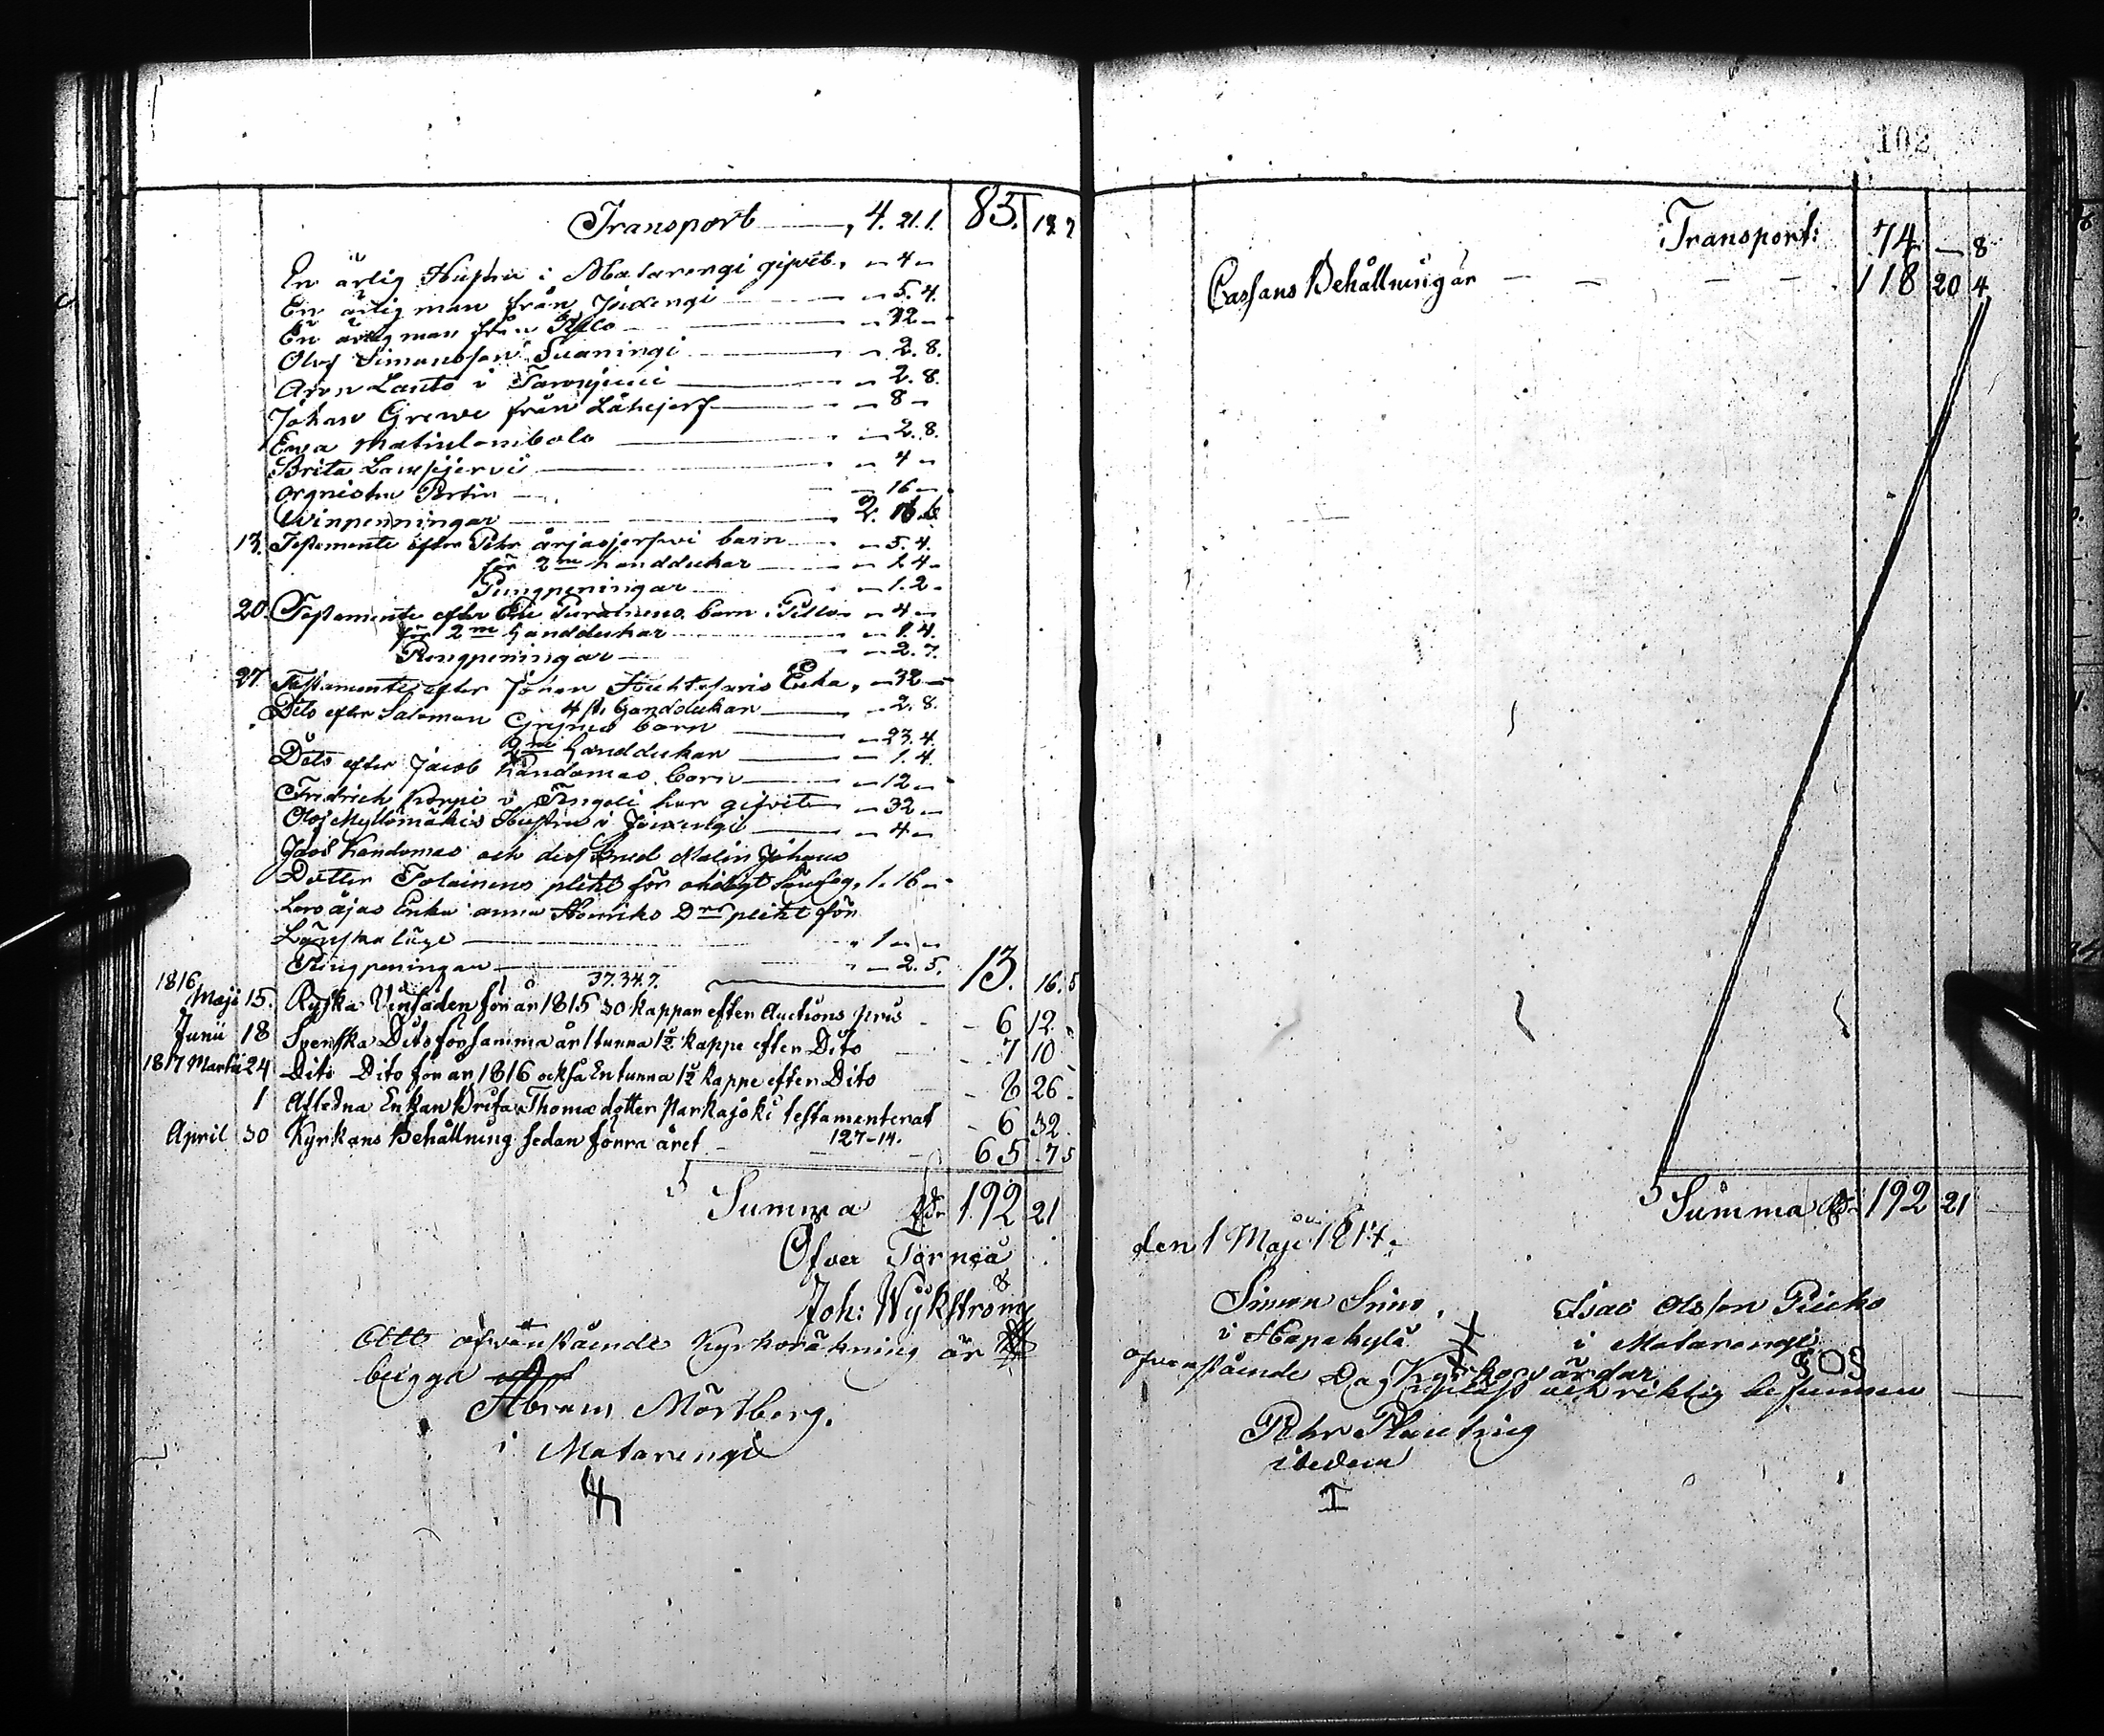 Transport 4. 21. 1. 85. 13. 7
En ärlig Hustru i Matarengi gifvit, – 4 –
En ärlig man från Juxengi – 5. 4.
En ärlig man från – 32 –
Olof Simonsson Svaningi – 2. 8.
Aron Lauto i – 2. 8.
Johan Grewe från – 8 –
Ewa Matinlombolo – 2. 8.
Brita Lampjervi – 4 –
Organisten Portin – 16 –
Vinpenningar 2. 16.
13. Testemente efter Pehr barn – 5. 4.
för 2ne handdukar – 1. 4.
Pungpeningar – 1. 2 –
20. Testemente efter barn i Pello – 4 –
för 2ne Handdukar – 1. 4.
Pengpeningar – 2. 7.
27. Testamente efter Johan Enka, – 32 –
4 st. Handdukar – 2. 8.
Dito efter Salomon barn – 23. 4.
2ne Handdukar – 1. 4.
Dito efter Jacob Kandomas barn – 12 –
Fridrich Korpi i Tengeli har gifvit – 32 –
Olof Myllimäkis Hustru i Juoxengi – 4 –
Jacob Kandomas och dess Brud Malin Johans
Dotter Tolainens plikt för otidigt Sängelag, 1. 16 –
Lars äjas Enka anna Henriks Dr plikt för
Lönska läge 1 – –
Pungpeningar – 2. 5. 13. 16. 5
37.34.7.
1816
Maji 15. Ryska Vinsäden för år 1815 30 kappar efter Auctions pris – 6 12 –
Junii 18 Svenska Dito för samma år 1 tunna 1½ kappe efter Dito – 7 10
1817 Martii 24 Dito Dito för år 1816 också En tunna 1½ kappe efter Dito – 8 26 –
1 Aflidna Enkan Brita Thomæ dotter Parkajoki testamenterat – 6 32
April 30 Kyrkans Behållning sedan förra året – 127–14. 65 7 5
Summa Rdr 192 21
Öfver Torneå
Joh: Wykström
Att ofvanstående Kyrkoräkning är
bevgga
Abram Mörtberg.
i Matarengi
102
Transport: 74 – 8
Cassans Behållning är – – – – 118 20 4
Summa Rdr 192 21
den 1 Maji 1817.
Simon Simo
i Hapakylä
Isac Olsson Piecko
i Matarengi
Kyrkovärdar
ofvanstående Dag upläst och riktig befunnen
Pehr Planting
ibidem